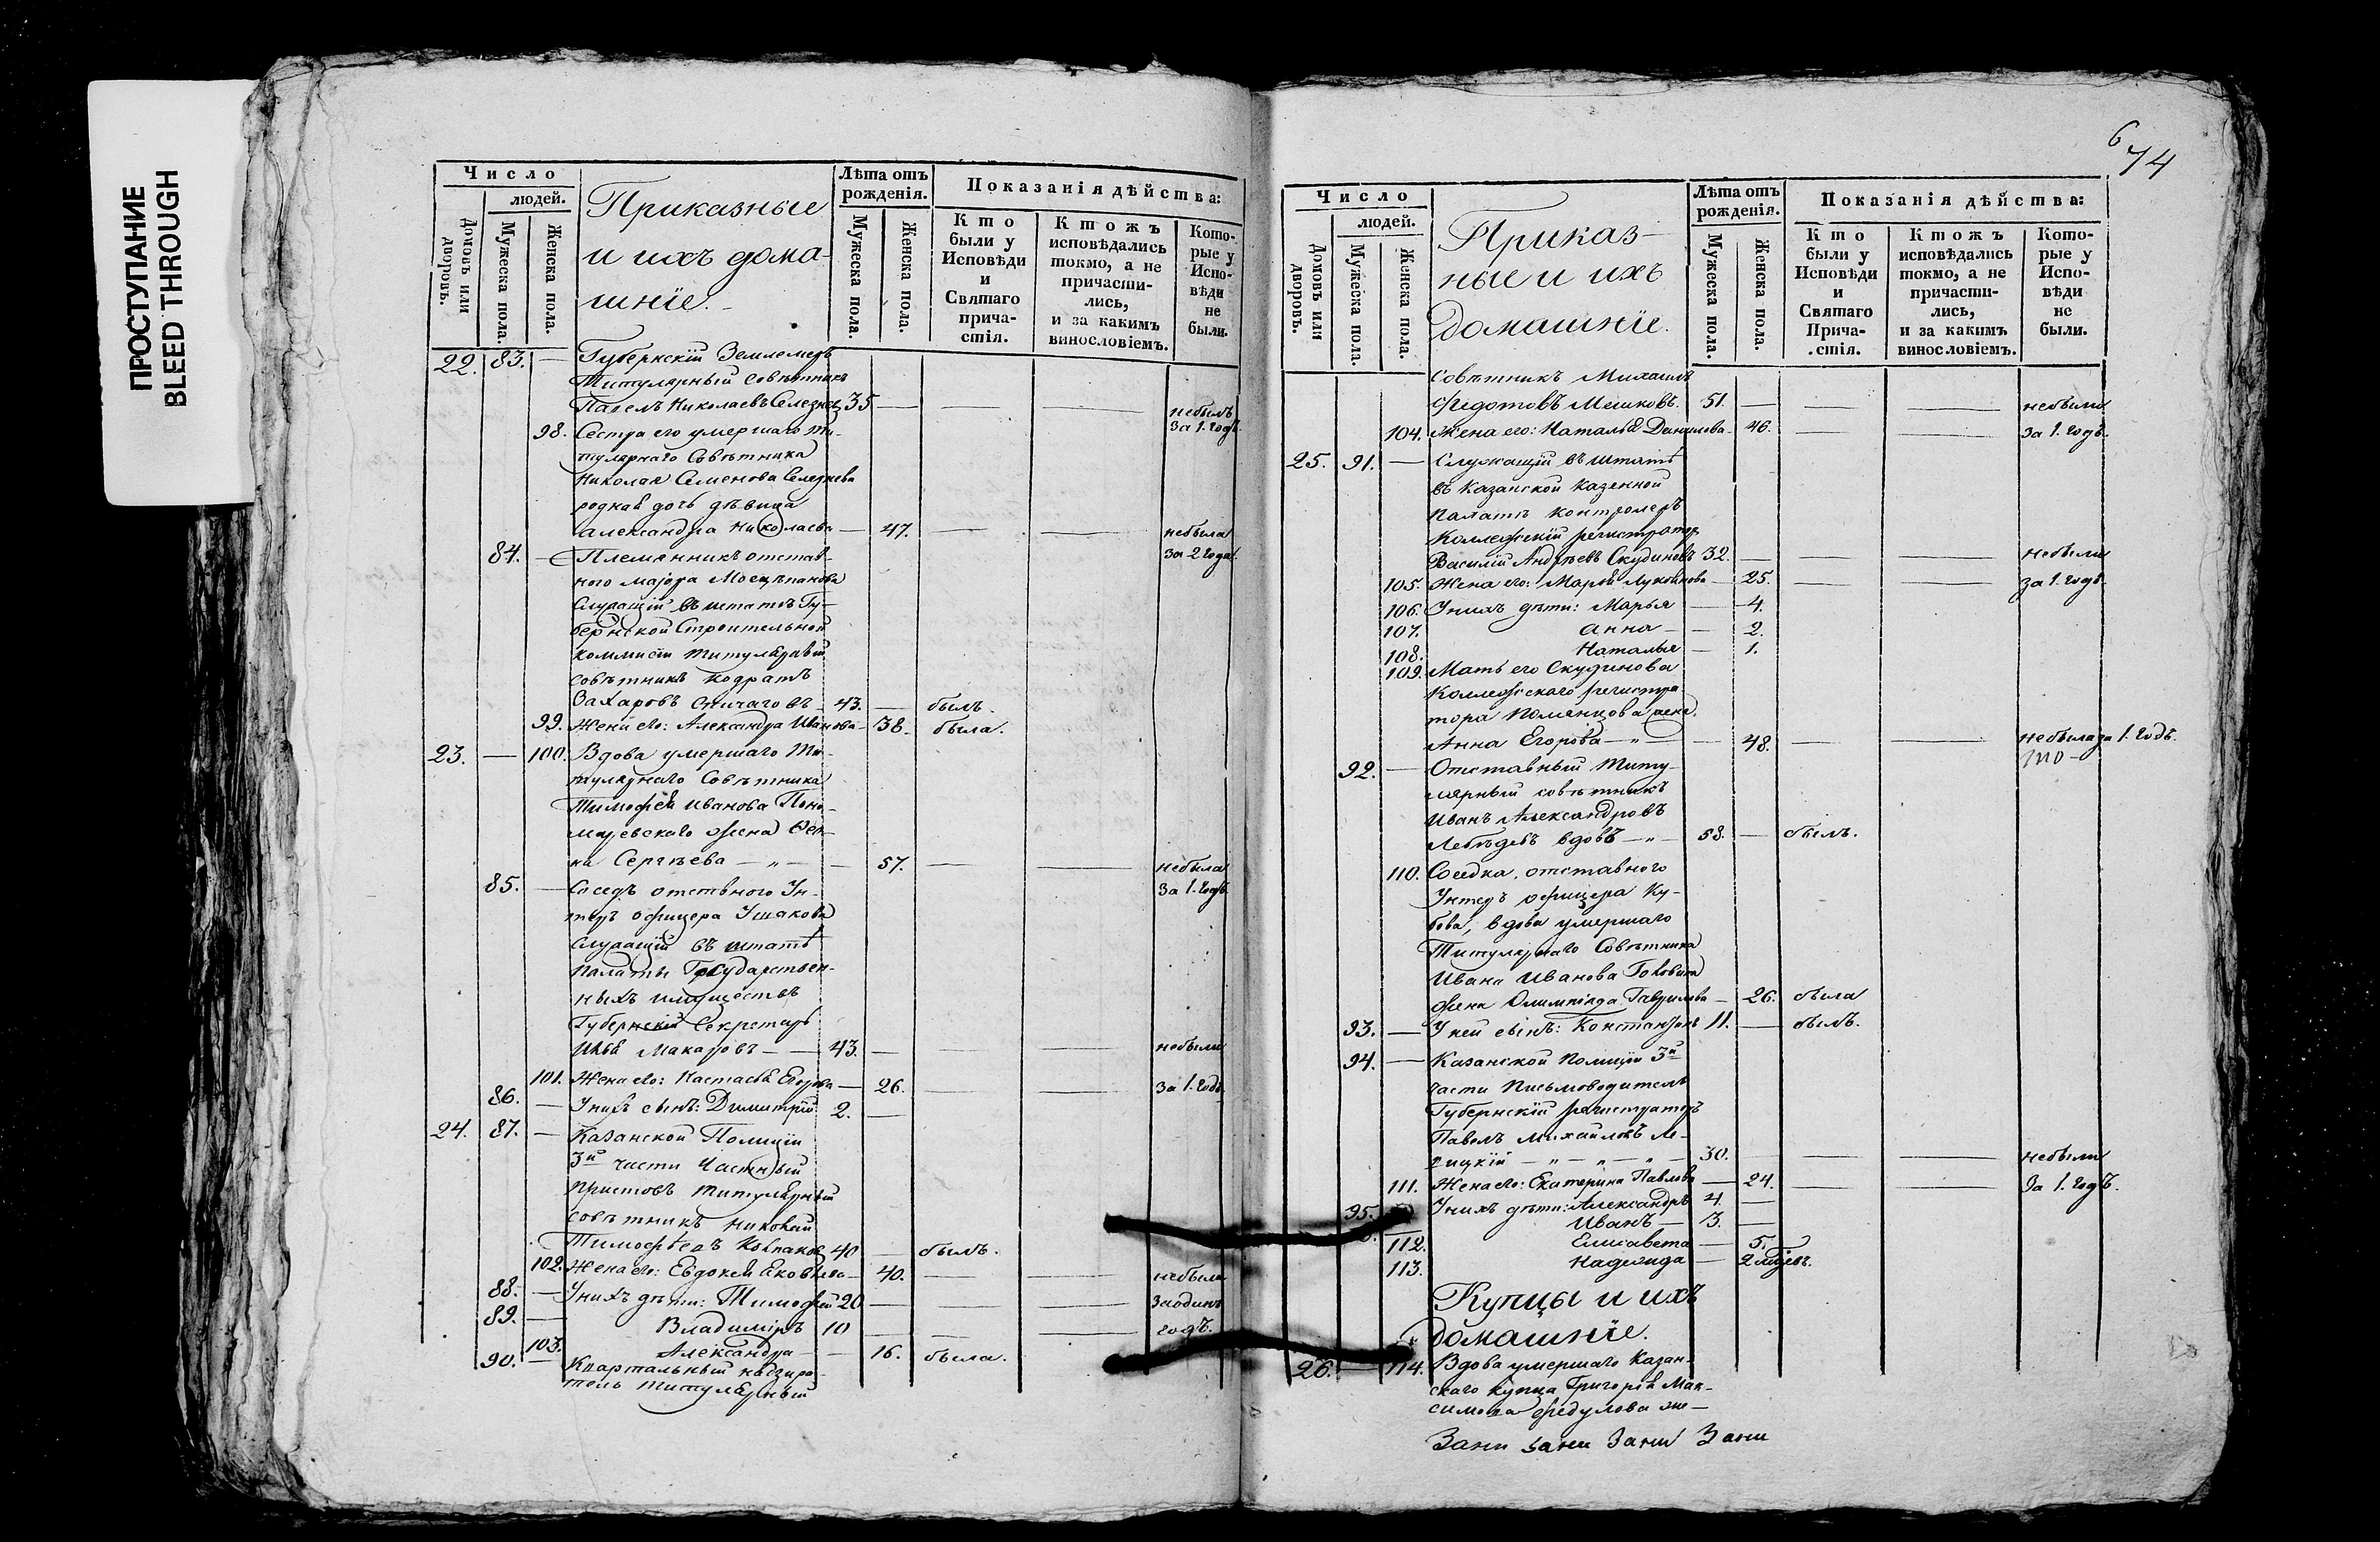 ПРОСТУПАНИЕ
BLEED THROUGH
Число
людей.
Домовъ или дворовъ.
Мужеска пола.
Женска пола.
Приказные
и ихъ дома-
шнїе.
Лѣта отъ
рожденія.
Мужеска пола.
Женска пола.
Показанія дѣйства:
Кто
были у
Исповѣди
и
Святаго
прича-
стія.
Ктожъ
исповѣдались
токмо, а не
причасти-
лись,
и за какимъ
винословіемъ.
Кото-
рые у
Испо-
вѣди
не
были.
22. 83. — Губернскїй Землемеръ
Титулярный Совѣтникъ
Павелъ Николаевъ Селезневъ 35 — небылъ
98. Сестра его умершаго Ти- за 1. годъ
тулярнаго Совѣтника
Николая Семенова Селезнева
родная дочь дѣвица
Александра Николаева — 47. небыла
84. — Племянникъ отстав- за 2 года
ного маіора
Служащїй въ штатѣ Гу-
бернской Строительной
коммисїи титулярный
совѣтникъ Кодратъ
Захаровъ 43. — былъ.
99. Жена его: Александра Иванова — 38. была.
23. — 100. Вдова умершаго Ти-
тулярнаго Совѣтника
Тимофея Иванова Поно-
маревского жена Фек-
ла Сергѣева — „ — — 57. небыла
85. — Соседъ отствного Ун- за 1. годъ
теръ офицера Ушакова
Служащїй въ штатѣ
Палаты Государствен-
ныхъ имуществъ
Губернскїй Секретарь
Илья Макаровъ — 43. — небыли
101. Жена его: Настасья Егорова — 26. за 1. годъ
86. — У нихъ сынъ: Димитрїй 2. —
24. 87. — Казанской Полицїи
3й части Частный
приставъ титулярный
совѣтникъ Николай
Тимофѣевъ Колпаковъ 40 — былъ.
102. Жена его: Евдокея Яковлева — 40. небыли
88. — У нихъ дѣти: Тимофей 20 — заодинъ
89. — Владимїръ 10 — годъ.
103. Александра — 16. была.
90. — Квартальный надзира-
тель титулярный
6
74
Число
людей.
Домовъ или дворовъ.
Мужеска пола.
Женска пола.
Приказ-
ные и ихъ
домашнїе.
Лѣта отъ
рожденія.
Мужеска пола.
Женска пола.
Показанія дѣйства:
Кто
были у
Исповѣди
и
Святаго
Прича-
стія.
Ктожъ
исповѣдались
токмо, а не
причасти-
лись,
и за какимъ
винословіемъ.
Кото-
рые у
Испо-
вѣди
не
были.
совѣтникъ Михаилъ
Федотовъ Мешковъ. 51. — небыли
104. Жена его: Наталья Данилова — 46. за 1. годъ.
25. 91. — Служащїй въ штатѣ
въ Казанской Казенной
Палатѣ контролеръ
Коллежскїй регистраторъ
Василїй Андрѣевъ Скудиновъ 32. — небыли
105. Жена его: Марья Лукоянова — 25. за 1. годъ.
106. У нихъ дѣти: Марья — 4.
107. Анна — 2.
108. Наталья — 1.
109. Мать его Скудинова
Коллежского регистра
тора жена.
Анна Егорова — „ — — 48. небыла за 1. годъ.
92. — Отставный титу-
лярный совѣтникъ
Иванъ Александровъ
Лебѣдевъ вдовъ — „ — 58. — былъ.
110. Соседка, отставного
Унтеръ офицера Ку-
бова, вдова умершаго
Титулярнаго Совѣтника
Ивана Иванова Головина
жена Олимпїада Гаврилова — 26. была
93. — У ней сынъ: Константинъ 11. — былъ.
94. — Казанской Полицїи 3й
части Письмоводитель
Губернскїй регистраторъ
Павелъ Михайловъ Ле-
вицкїй — „ — „ — „ — 30. небыли
111. Жена его: Екатерина Павлова — 24. за 1. годъ.
95. У нихъ дѣти: Александръ 4. —
Иванъ — 3. —
112. Елисавета — 5.
113. Надежда — 2
Купцы и ихъ
домашнїе.
26. — 114. Вдова умершаго Казан-
скаго купца Григорья Мак-
симова Федулова же-